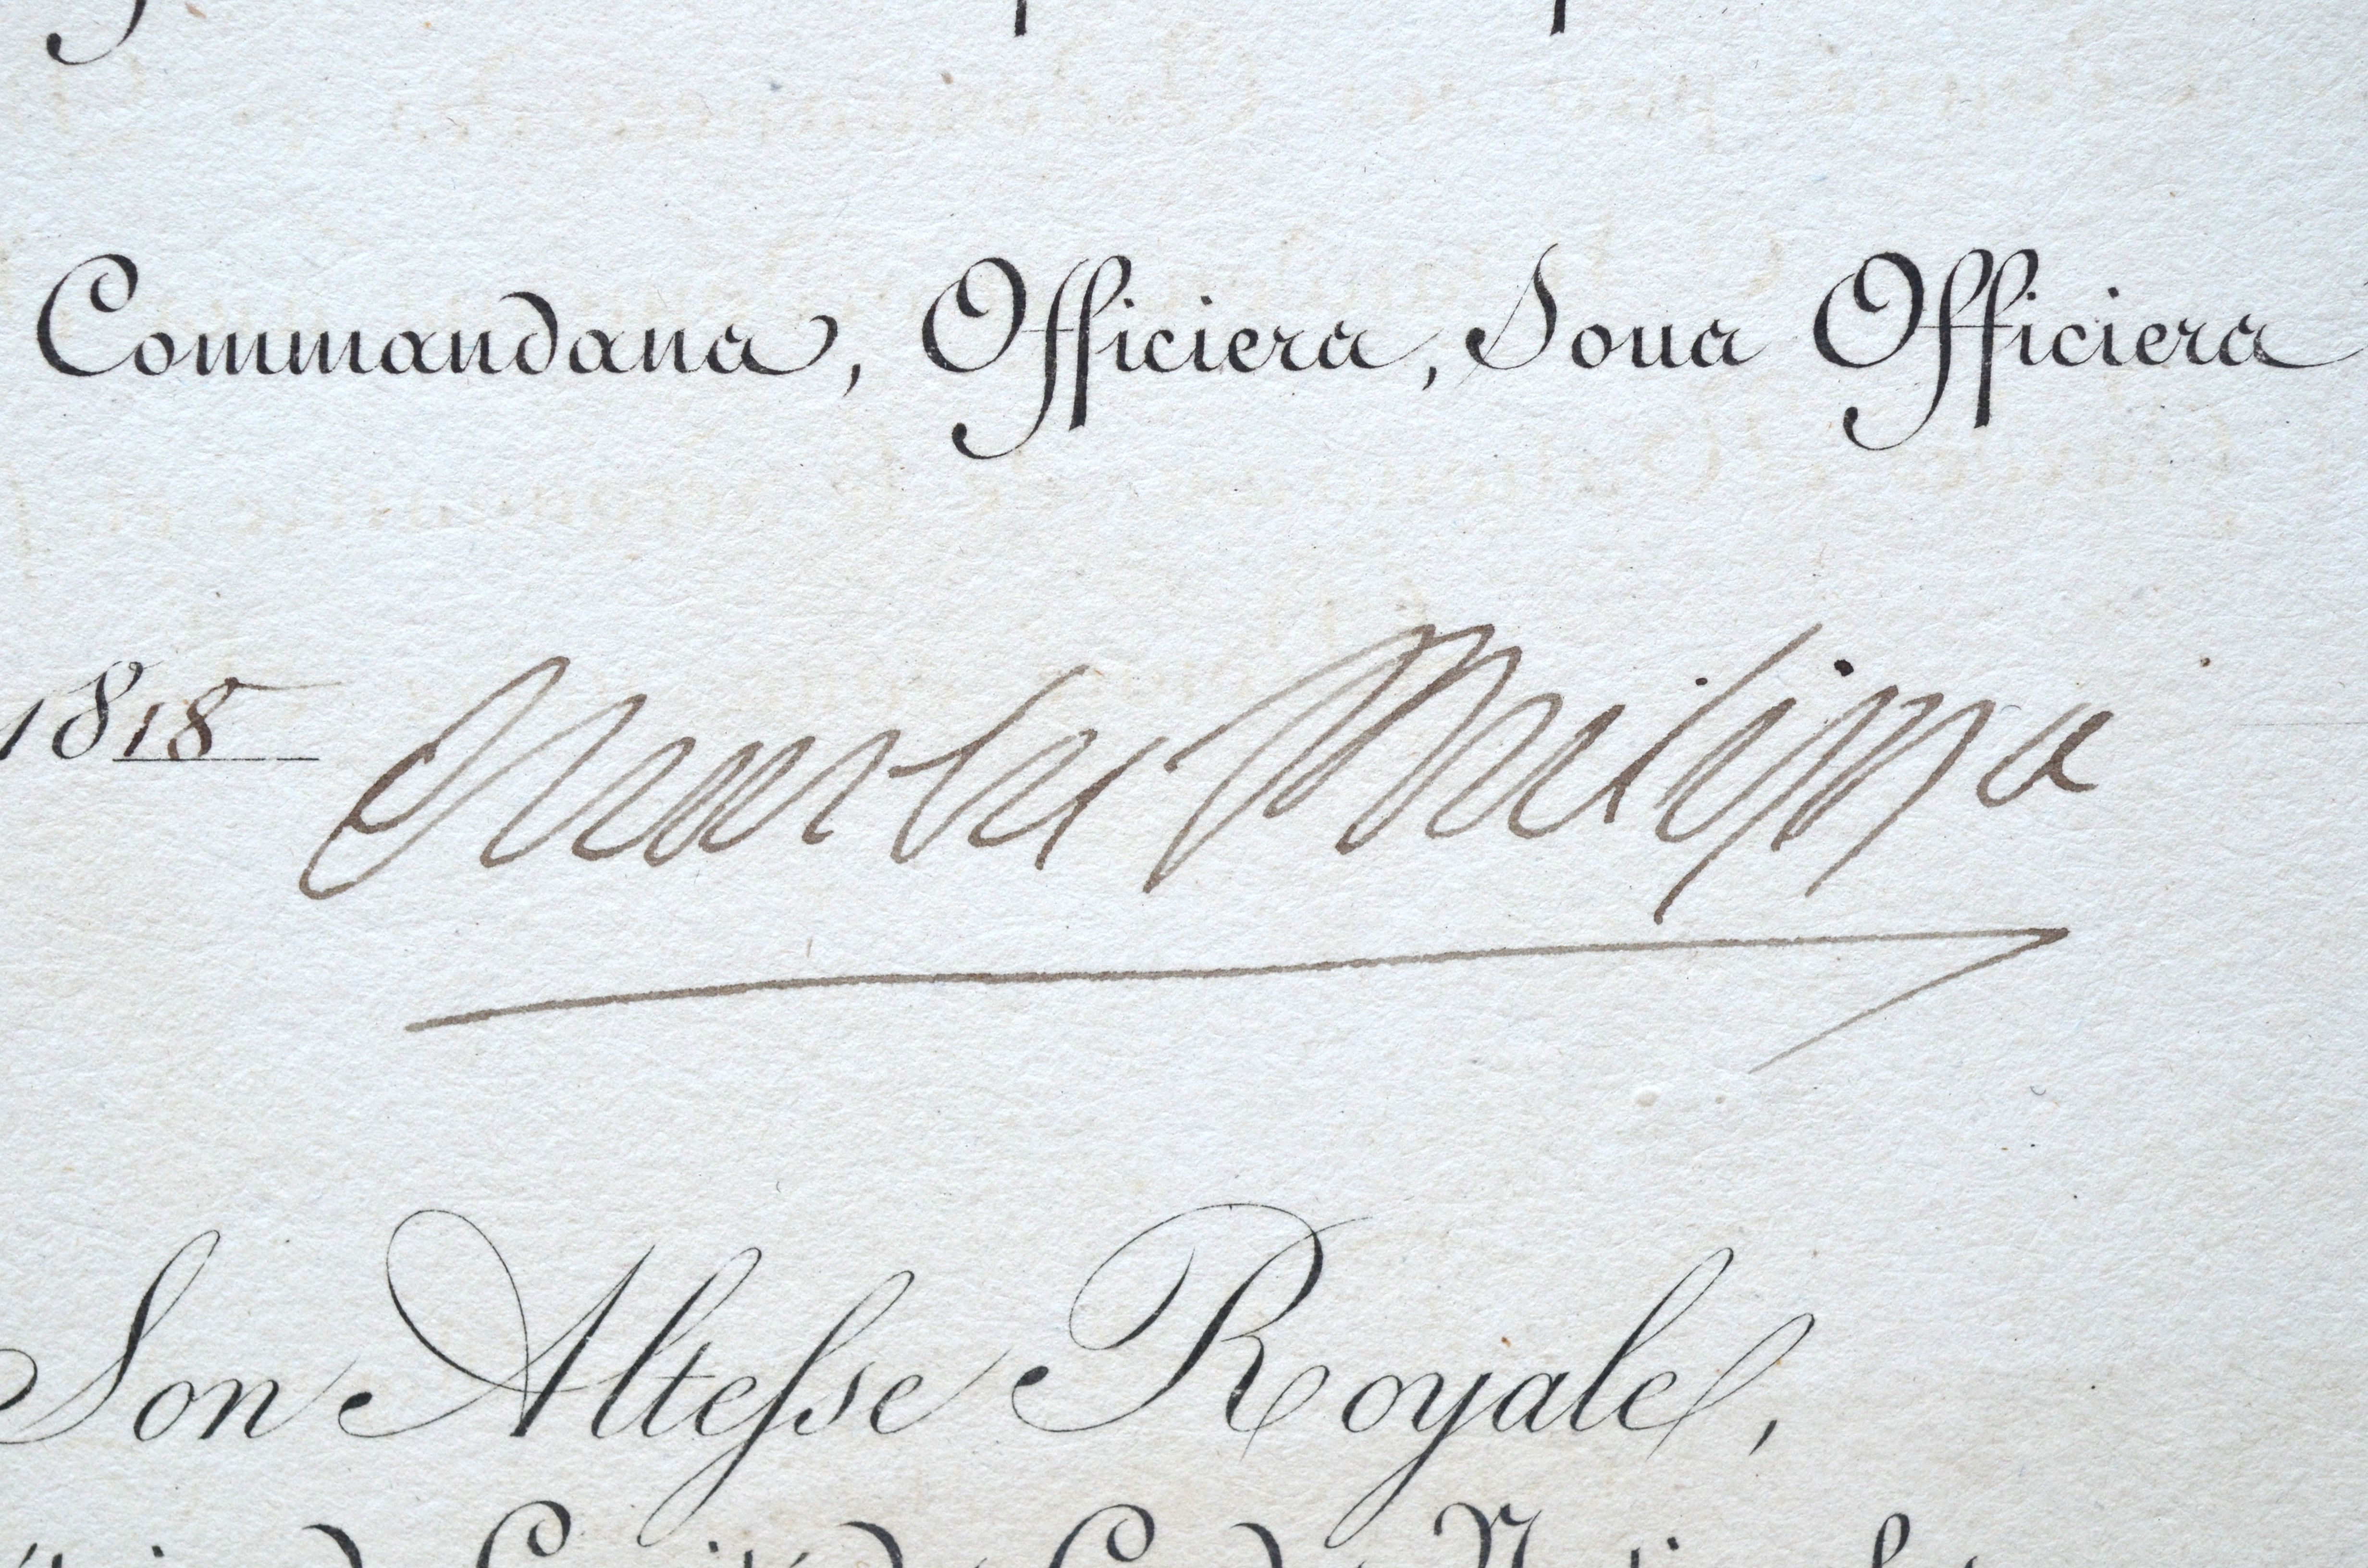 Commandans, Officiers, Sous Officiers
1818 Charles Philippe
Son Altesse Royale,